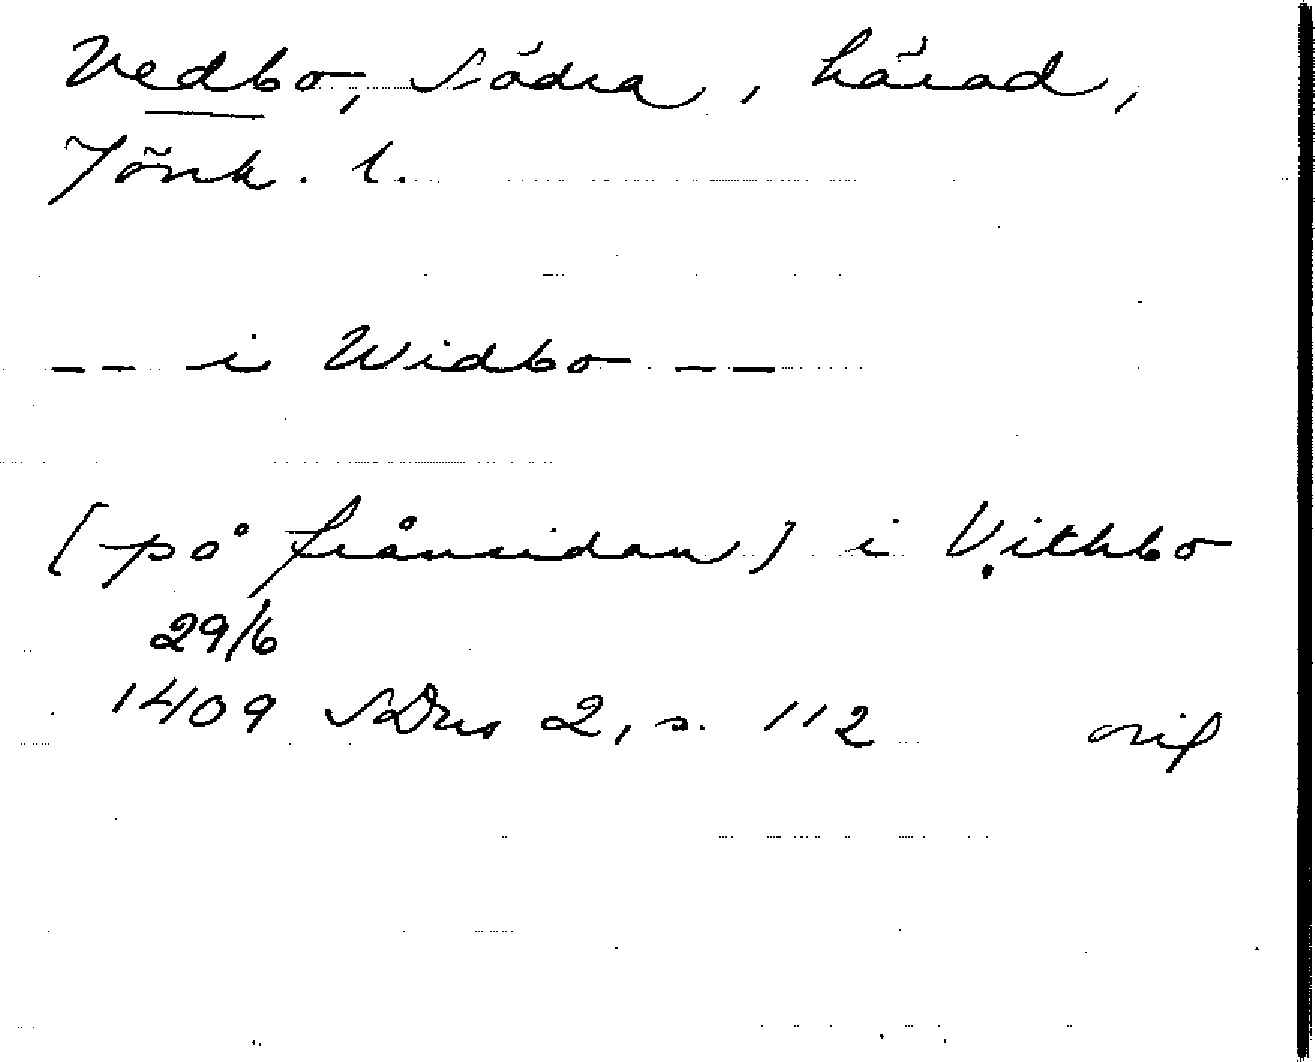 Vedbo, Södra, härad,
Jönk. l.
-- i Widbo --
[på frånsidan] i Vithbo
29/6
1409 SDns 2, s. 112 orig